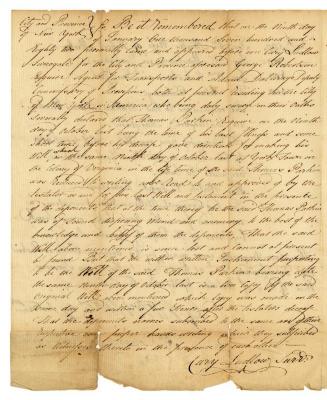 City and Province
of New York
Be it Remembered that on the Ninth day
of January One thousand Seven hundred and
Eighty two Personally came and appeared before me Cary Ludlow
Surrogate for the City and Province aforesaid George Robertson
Esquire Agent for Transports and Deputy
Commissary of Prisoners both at present residing in the City
of New York in America who being duly sworn on their Oaths
Severally declared that Thomas Parkin Esquire on the Ninth
day of October last being the time of his last Illness and some
short time before his decease gave directions for making his
Will, which on the same Ninth day of October last at York Town in
the Colony of Virginia in the life time of the said Thomas Parkin
was reduced to writing and read to and approved of by the
Testator as his last Will and Testament in the presence
of the deponents that at the time thereof the said Thomas Parkin
was of Sound disposing Mind and memory to the best of the
knowledge and belief of them the deponents, That the said
Will above mentioned is since lost and cannot at present
be found But that the written Instrument purporting
to be the Will of the said Thomas Parkin bearing date
the same Ninth day of October last is a true Copy of the said
Original Will above mentioned which Copy was made on the
same day and within a few Hours after the Testators decease
That the deponents names subscribed to the same are of their
respective and proper hands writing which they subscribed
as Witnesses thereto in the presence of each other
Cary Ludlow Surr